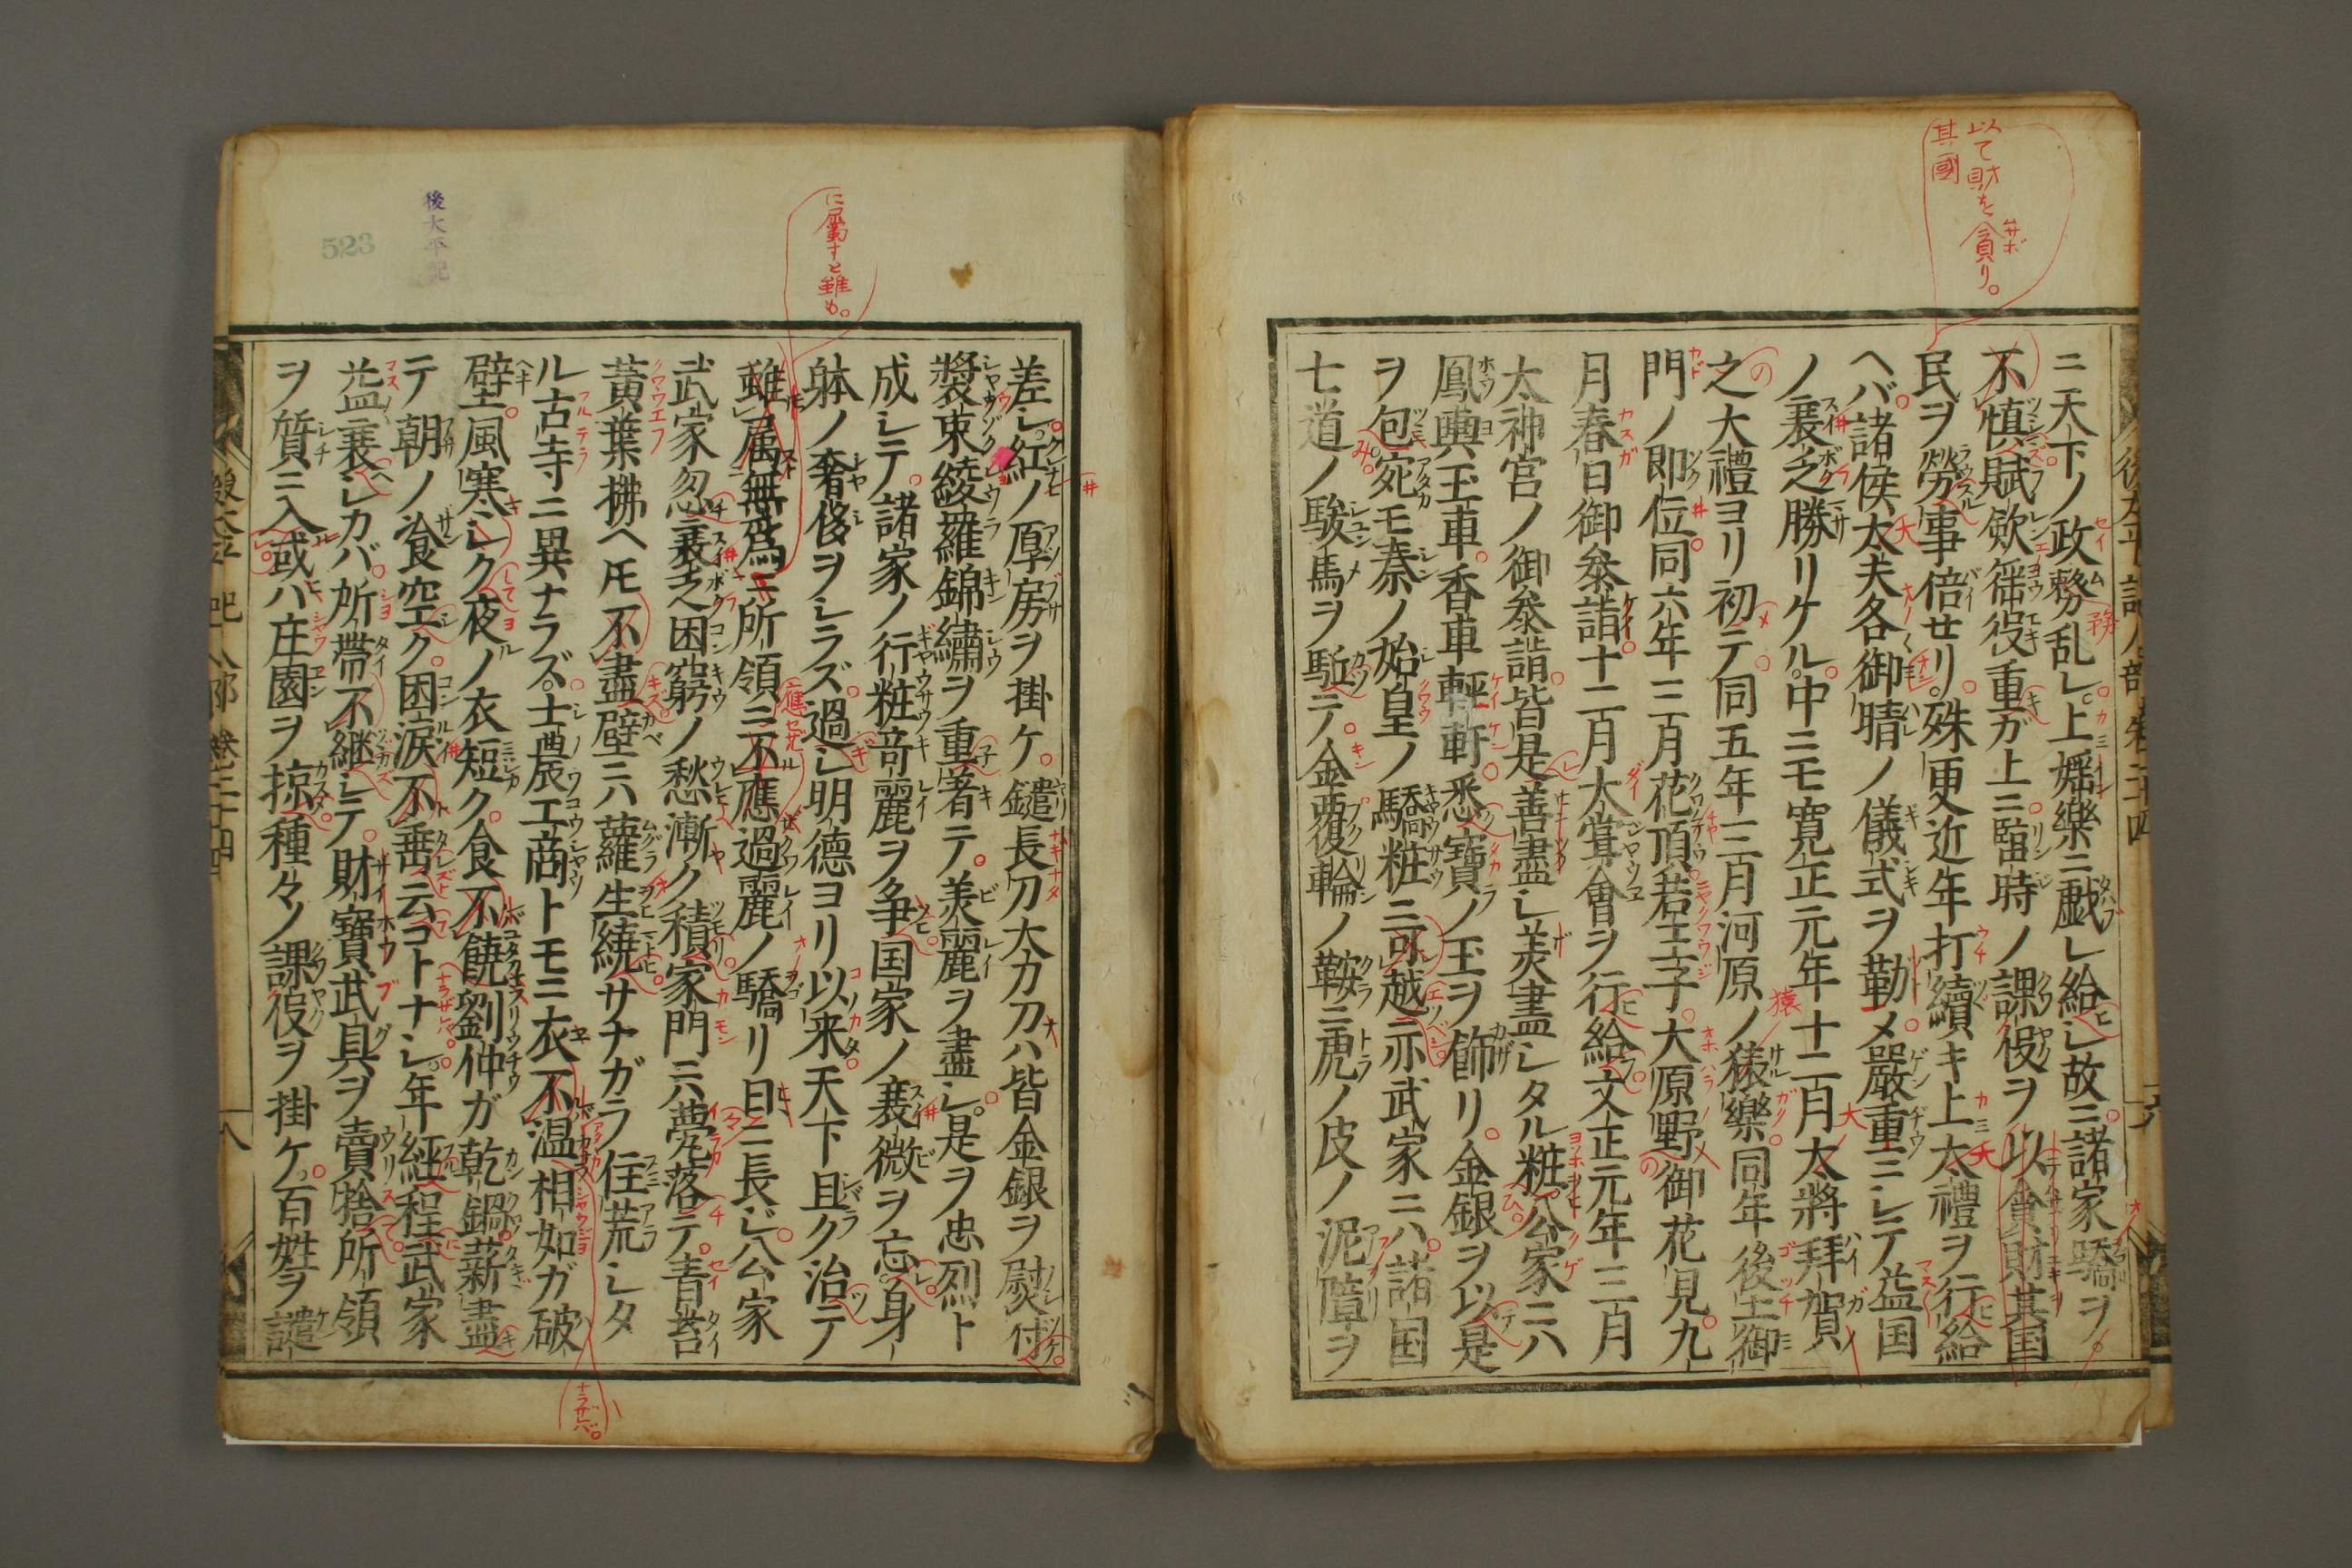 以て財を貪り。
其國
ニ天下ノ政務乱レ上婬樂ニ戯レ給ヒシ故ニ諸家驕ヲ
不慎賦歛徭役重ガ上ニ臨時ノ課役ヲ以貪財其国
民ヲ勞事倍セリ殊更近年打續キ上太禮ヲ行給
ヘバ諸侯太夫各御晴ノ儀式ヲ勤メ嚴重ニシテ益国
ノ衰乏勝リケル中ニモ寛正元年十二月太將拜賀
之大禮ヨリ初テ同五年三月河原ノ猿樂同年後土御
門ノ即位同六年三月花頂若王子大原野御花見九
月春日御参詣十二月大嘗會ヲ行給文正元年三月
太神宮ノ御参詣皆是善盡シ美盡シタル粧公家ニハ
鳳輿玉車香車軽軒悉寶ノ玉ヲ飾リ金銀ヲ以是
ヲ包宛モ秦ノ始皇ノ驕粧ニ可越亦武家ニハ諸国
七道ノ駿馬ヲ駈テ金覆輪ノ鞍ニ虎ノ皮ノ泥障ヲ
に屬すと雖も。
後太平記
523
差シ紅ノ厚房ヲ掛ケ鑓長刀太刀刀ハ皆金銀ヲ熨付
漿束綾羅錦繍ヲ重著テ美麗ヲ盡シ是ヲ忠烈ト
成シテ諸家ノ行粧竒麗ヲ争国家ノ衰微ヲ忘身
躰ノ奢侈ヲシラズ過シ明德ヨリ以来天下且ク治テ
雖属無爲ニ所領ニ不應過麗ノ驕リ日ニ長ジ公家
武家忽衰乏困窮ノ愁漸ク積家門ニハ甍落テ青苔
黄葉拂ヘ𪜈不盡壁ニハ蘿生繞サナガラ住荒シタ
ル古寺ニ異ナラズ士農工商トモニ衣不温相如ガ破
壁風寒シク夜ノ衣短ク食不饒劉仲ガ乾鍋薪盡
テ朝ノ飡空ク困涙不垂云コトナシ年經程武家
益衰シカバ所帶不継シテ財寶武具ヲ賣捨所領
ヲ質ニ入或ハ庄園ヲ掠種々ノ課役ヲ掛ケ百姓ヲ譴
ナラザレバ。